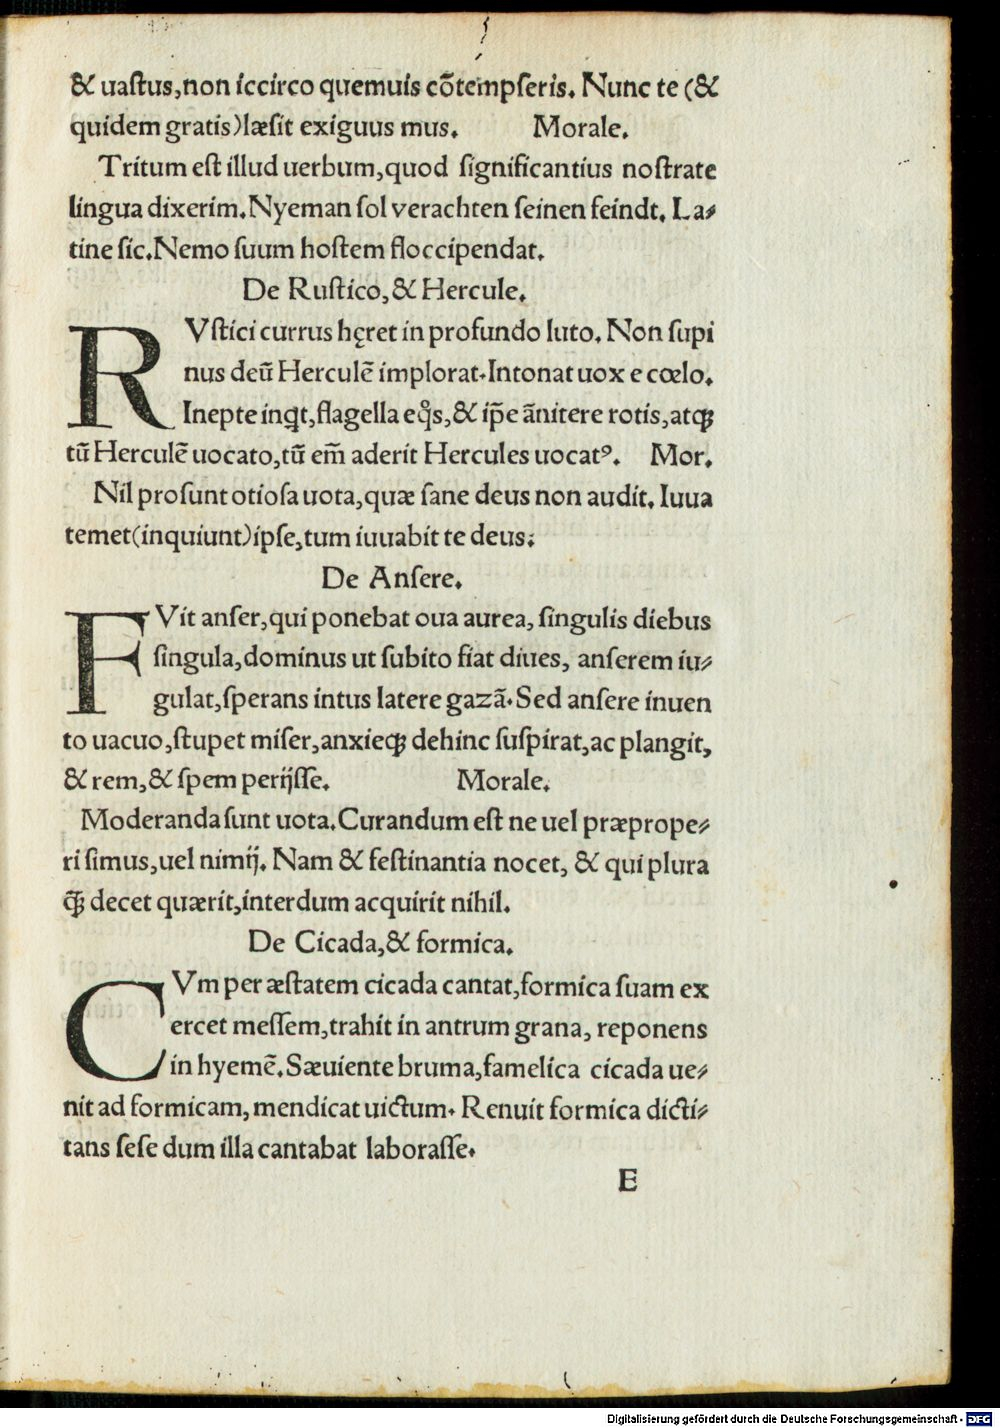 & uaſtus,non iccirco quemuis cõtempſeris. Nunc te (&
quidem gratis)læsit exiguus mus. Morale.
Tritum eſt illud uerbum,quod significantius noſtrate
lingua dixerim.Nyeman ſol verachten ſeinen feindt. La⸗
tine ſic.Nemo ſuum hoſtem floccipendat.
De Ruſtico,& Hercule.
RVſtici currus hęret in profundo luto. Non ſupi
nus deũ Herculẽ implorat.Intonat uox e cœlo.
Inepte inqt,flagella eq̊s,& ip̃e ãnitere rotis,atqꝫ
tũ Herculẽ uocato,tũ em̃ aderit Hercules uocatꝰ. Mor.
Nil proſunt otioſa uota,quæ ſane deus non audit. Iuua
temet(inquiunt)ipſe,tum iuuabit te deus.
De Anſere.
FVit anſer,qui ponebat oua aurea, ſingulis diebus
ſingula,dominus ut ſubito fiat diues, anſerem iu⸗
gulat,ſperans intus latere gazã.Sed anſere inuen
to uacuo,ſtupet miſer,anxieqꝫ dehinc ſuſpirat,ac plangit,
& rem,& ſpem perijſſe. Morale.
Moderanda ſunt uota.Curandum eſt ne uel præprope⸗
ri simus,uel nimij. Nam & feſtinantia nocet, & qui plura
q̃ꝫ decet quærit,interdum acquirit nihil.
De Cicada,& formica.
CVm per æſtatem cicada cantat,formica ſuam ex
ercet meſſem,trahit in antrum grana, reponens
in hyemẽ.Sæuiente bruma,famelica cicada ue⸗
nit ad formicam, mendicat uictum. Renuit formica dicti⸗
tans ſeſe dum illa cantabat laboraſſe.
E
Digitalisierung gefördert durch die Deutsche Forschungsgemeinschaft - DFG